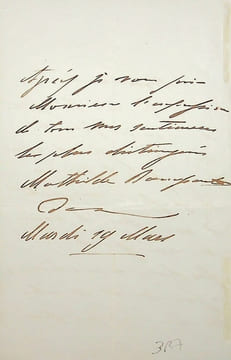 Agréez je vous prie
Monsieur l'expression
de tous mes sentiments
les plus distingués
Mathilde Bonaparte
Mardi 19 Mars
387